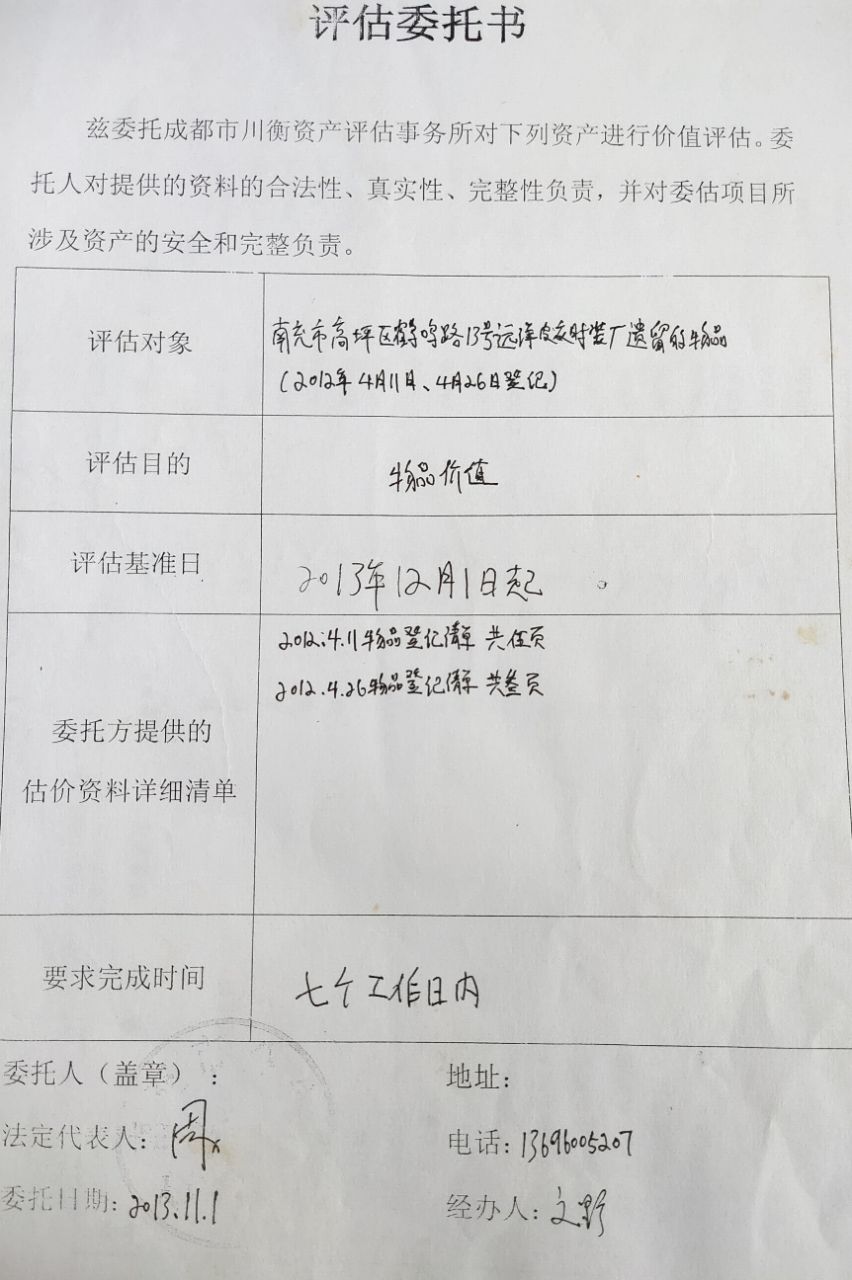 评估委托书
兹委托成都市川衡资产评估事务所对下列资产进行价值评估。委
托人对提供的资料的合法性、真实性、完整性负责，并对委估项目所
涉及资产的安全和完整负责。
评估对象
南充市高坪区鹤鸣路13号远洋皮衣时装厂遗留的物品
（2012年4月11日、4月26日登记）
评估目的
物品价值
评估基准日
2013年12月1日起
委托方提供的
估价资料详细清单
2012.4.11物品登记清单 共伍页
2012.4.26物品登记清单 共叁页
要求完成时间
七个工作日内
委托人（盖章）：
地址：
法定代表人：周
电话：13696005207
委托日期：2013.11.1
经办人：文野